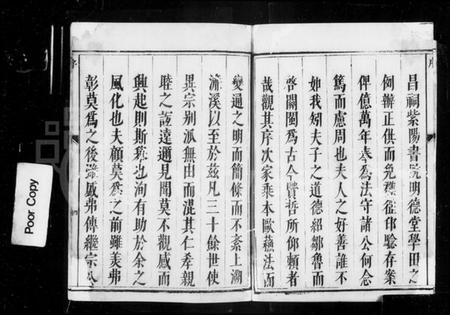 昌祠紫陽書院明德堂學田之
例辦正供而免襍徭印驗存案
俾億萬年奉為法守諸公何念
篤而慮周也夫人之好善誰不
如我矧夫子之道德紹鄒魯而
啓關閩為古今賢哲所仰賴者
哉觀其序次家乗本歐蘓法而
變通之明而簡條而不紊上溯
濂溪以至於玆凡三十餘世使
異宗别派無由而混其仁孝親
睦之誼遠邇見聞莫不觀感而
興起則斯譜也洵有助於余之
風化也夫顧莫為之前雖美弗
彰莫為之後雖盛弗傳繼宗公
序
Poor Copy